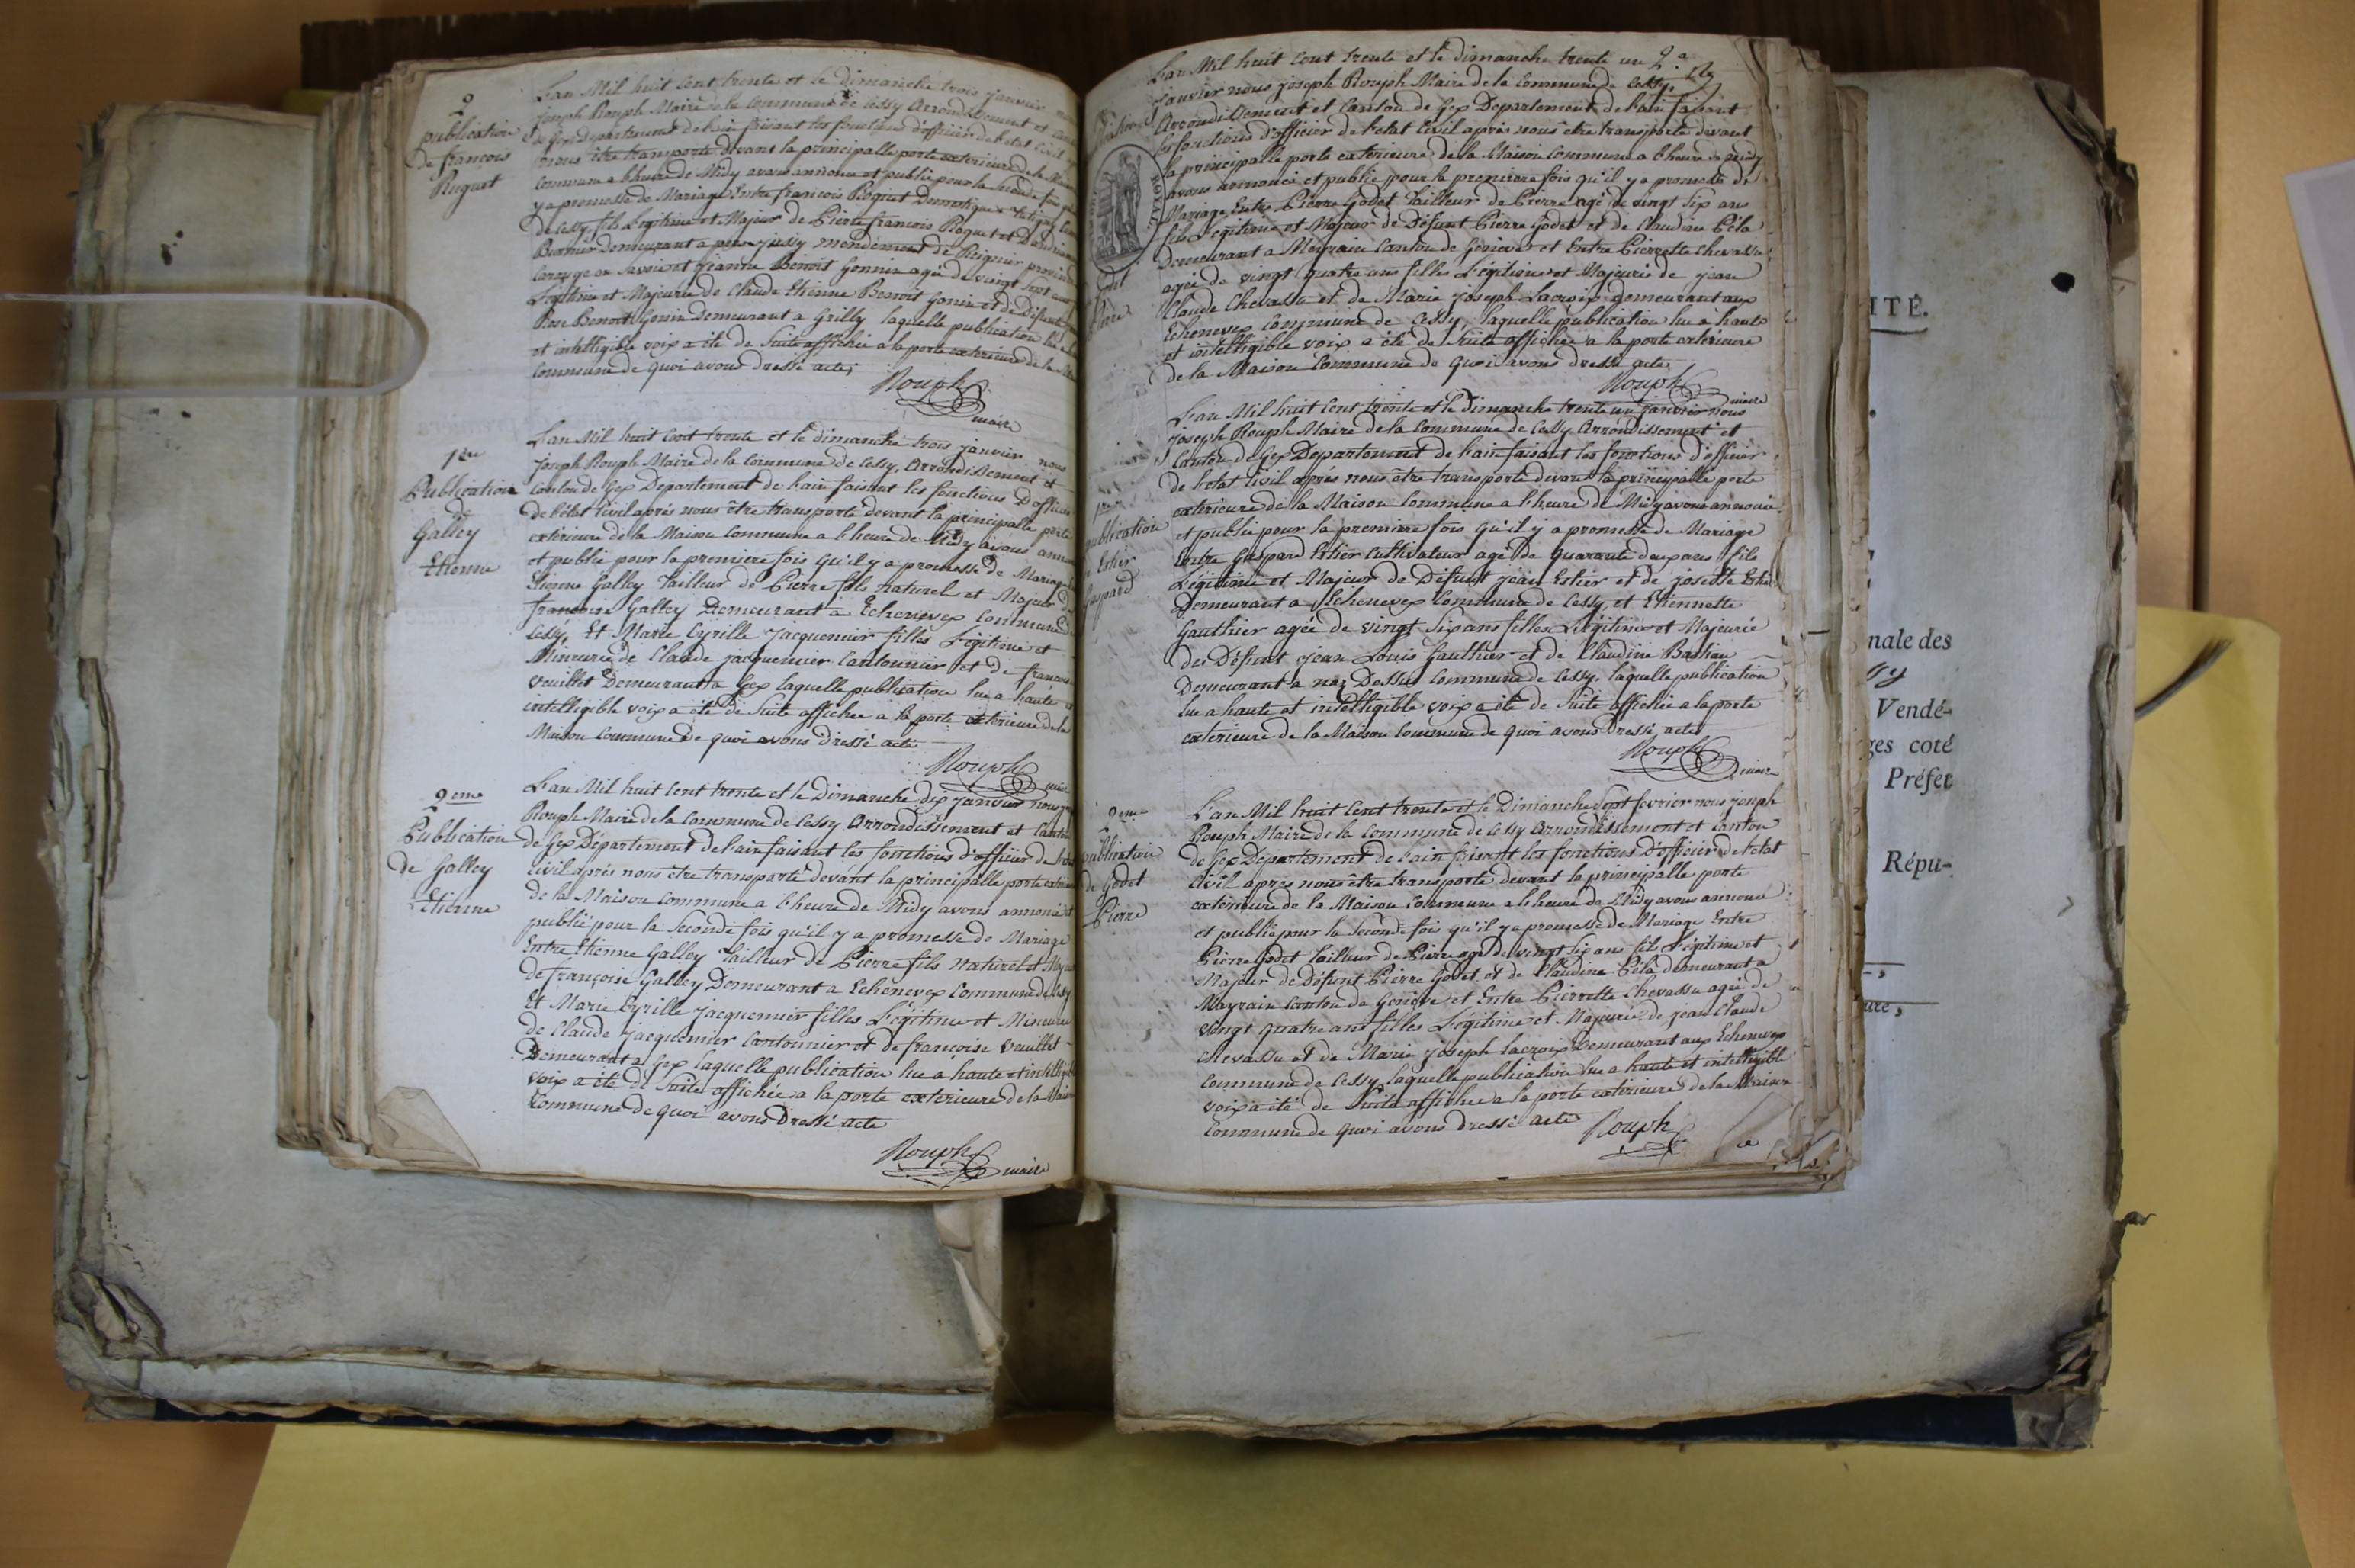 2
publication
de françois
Ruguet
L'an Mil huit Cent trente et le dimanche trois janvier
joseph Rouph Maire de la Commune de Cessy Arrondissement et
de Gex departement de Lain faisant les fonctions d'officier de l'etat Civil
nous être transporté devant la principalle porte exterieure de la
Commune a l'heure de Midy avons annoncé et publié pour la seconde fois
y a promesse de Mariage Entre françois Roguet Domestique
de Cessy fils Légitime et Majeur de Pierre françois Roguet et
demeurant a jussy mandement de Reignier
Carouge en Savoie et jeanne Benoit Gonnin agée de vingt
Légitime et Majeure de Claude Etienne Benoit Gonin et de Défunte
Rose Benoit Gonin Demeurant a Grilly laquelle publication lue
et intelligible voix a été de Suite affichée a la porte exterieure de la
Commune de quoi avons dressé acte,
Rouph
maire
1ere
Publication
de
Galley
Etienne
L'an Mil huit Cent trente et le dimanche trois janvier nous
joseph Rouph Maire de la Commune de Cessy, Arrondissement et
Canton de Gex Departement de Lain faisant les fonctions D'officier
de l'état Civil après nous être transporté devant la principalle porte
extérieure de la Maison Commune a l'heure de Midy avons
et publié pour la premiere fois qu'il y a promesse de Mariage
Etienne Galley Tailleur de Pierre fils naturel et Majeur de
françoise Galley Demeurant a Echenevex Commune
Cessy, Et Marie Cyrille jacquemier filles Légitime et
Mineure de Claude jacquemier Cantonnier et de françoise
veuillet Demeurant a Gex laquelle publication lue a haute
intelligible voix a été de Suite affichée a la porte exterieure de la
Maison Commune de quoi avons dressé acte
Rouph
2eme
Publication
de Galley
Etienne
L'an Mil huit Cent trente et le Dimanche dix janvier nous
Rouph Maire de la Commune de Cessy Arrondissement et Canton
de Gex Département de Lain faisant les fonctions d'officier de
Civil aprés nous être transporté devant la principalle porte
de la Maison Commune a l'heure de Midy avons annoncé
publié pour la Seconde fois qu'il y a promesse de Mariage
Entre Etienne Galley Tailleur de Pierre fils naturel et
de françoise Galley Demeurant a Echenevex Commune de Cessy
Et Marie Cyrille jacquemier filles Légitime et Mineure
de Claude jacquemier Cantonnier et de françoise veuillet
Demeurant a Gex laquelle publication lue a haute et
voix a été de Suite affichée a la porte exterieure de la
Commune de quoi avons Dressé acte
Rouph
maire
L'an Mil huit Cent trente et le dimanche trente un
janvier nous joseph Rouph Maire de la Commune de Cessy,
Arrondissement et Canton de Gex Departement de Lain faisant
les fonctions d'officier de l'etat Civil après nous être transporté devant
la principalle porte exterieure de la Maison Commune a l'heure de Midy
avons annoncé et publié pour la premiere fois qu'il y a promesse de
Mariage Entre Pierre Godet Tailleur de Pierre agé de vingt Six ans
fils Légitime et Majeur de Défunt Pierre Godet et de Claudine Péla
Demeurant a Meyrain Canton de Géneve et Entre Pierrette Chevassu
agée de vingt quatre ans filles Légitime et Majeure de jean
Claude Chevassu et de Marie joseph Lacroix Demeurant aux
Echenevex Commune de Cessy, laquelle publication lue a haute
et intelligible voix a été de Suite affichée a la porte extérieure
de la Maison Commune de quoi avons dressé acte,
Rouph
maire
publication
Estier
Gaspard
L'an Mil huit Cent trente et le Dimanche trente un janvier nous
joseph Rouph Maire de la Commune de Cessy Arrondissement et
Canton de Gex Departement de Lain faisant les fonctions d'officier
de l'etat Civil après nous être transporté devant la principalle porte
exterieure de la Maison Commune a l'heure de Midy avons annoncé
et publié pour la premiere fois qu'il y a promesse de Mariage
Entre Gaspard Estier Cultivateur agé de quarante deux ans fils
Légitime et Majeur de Défunt jean Estier et de josette
Demeurant a Echenevex Commune de Cessy, et Etiennette
Gauthier agée de vingt Six ans filles Légitime et Majeure
de Défunt jean Louis Gauthier et de Claudine Bastian
Demeurant a naz Dessus Commune de Cessy, laquelle publication
lue a haute et intelligible voix a été de Suite affichée a la porte
exterieure de la Maison Commune de quoi avons Dressé acte
Rouph
maire
2eme
publication
de Godet
Pierre
L'an Mil huit Cent trente et le Dimanche Sept fevrier nous joseph
Rouph Maire de la Commune de Cessy Arrondissement et Canton
de Gex Departement de Lain faisant les fonctions d'officier de l'etat
Civil apres nous être transporté devant la principalle porte
exterieure de la Maison Commune a l'heure de Midy avons annoncé
et publié pour la Seconde fois qu'il y a promesse de Mariage Entre
Pierre Godet Tailleur de Pierre agé de vingt Six ans fils Légitime et
Majeur de Défunt Pierre Godet et de Claudine Péla demeurant a
Mayrain Canton de Genève et Entre Pierrette Chevassu agée de
vingt quatre ans filles Légitime et Majeure de jean Claude
Chevassu et de Marie joseph Lacroix Demeurant aux Echenevex
Commune de Cessy, laquelle publication lue a haute et intelligible
voix a été de Suite affichée a la porte exterieure de la Maison
Commune de quoi avons dressé acte
Rouph
ITÉ.
nale des
Vendé-
ges coté
Préfet
Répu-